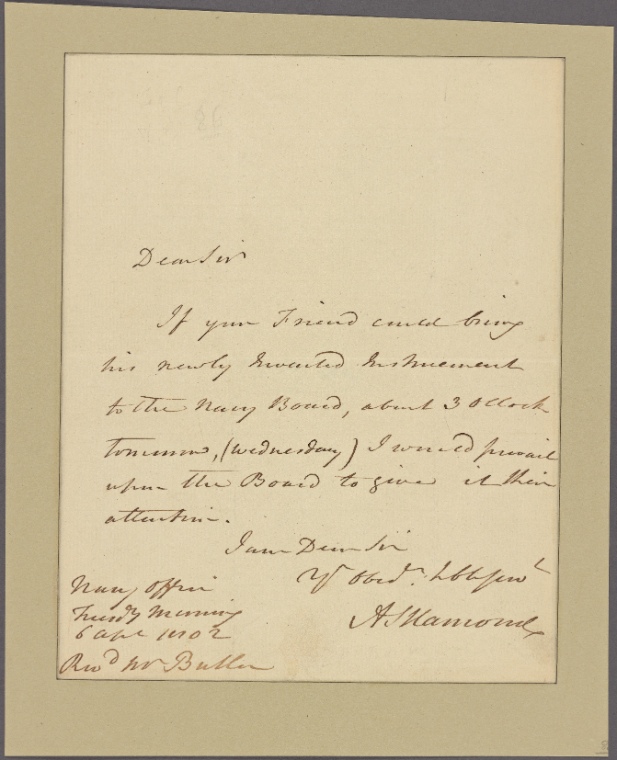 Dear Sir
If your Friend could bring
his newly Invented Instrument
to the Navy Board, about 3 oClock
tomorrow, (wednesday) I would prevail
upon the Board to give it their
attention.
I am Dear Sir
Yr Obedt. hble Servt
A S Hamond
Navy Office
Tuesdy Morning
6 Apl 1802
Revd Mr Butler